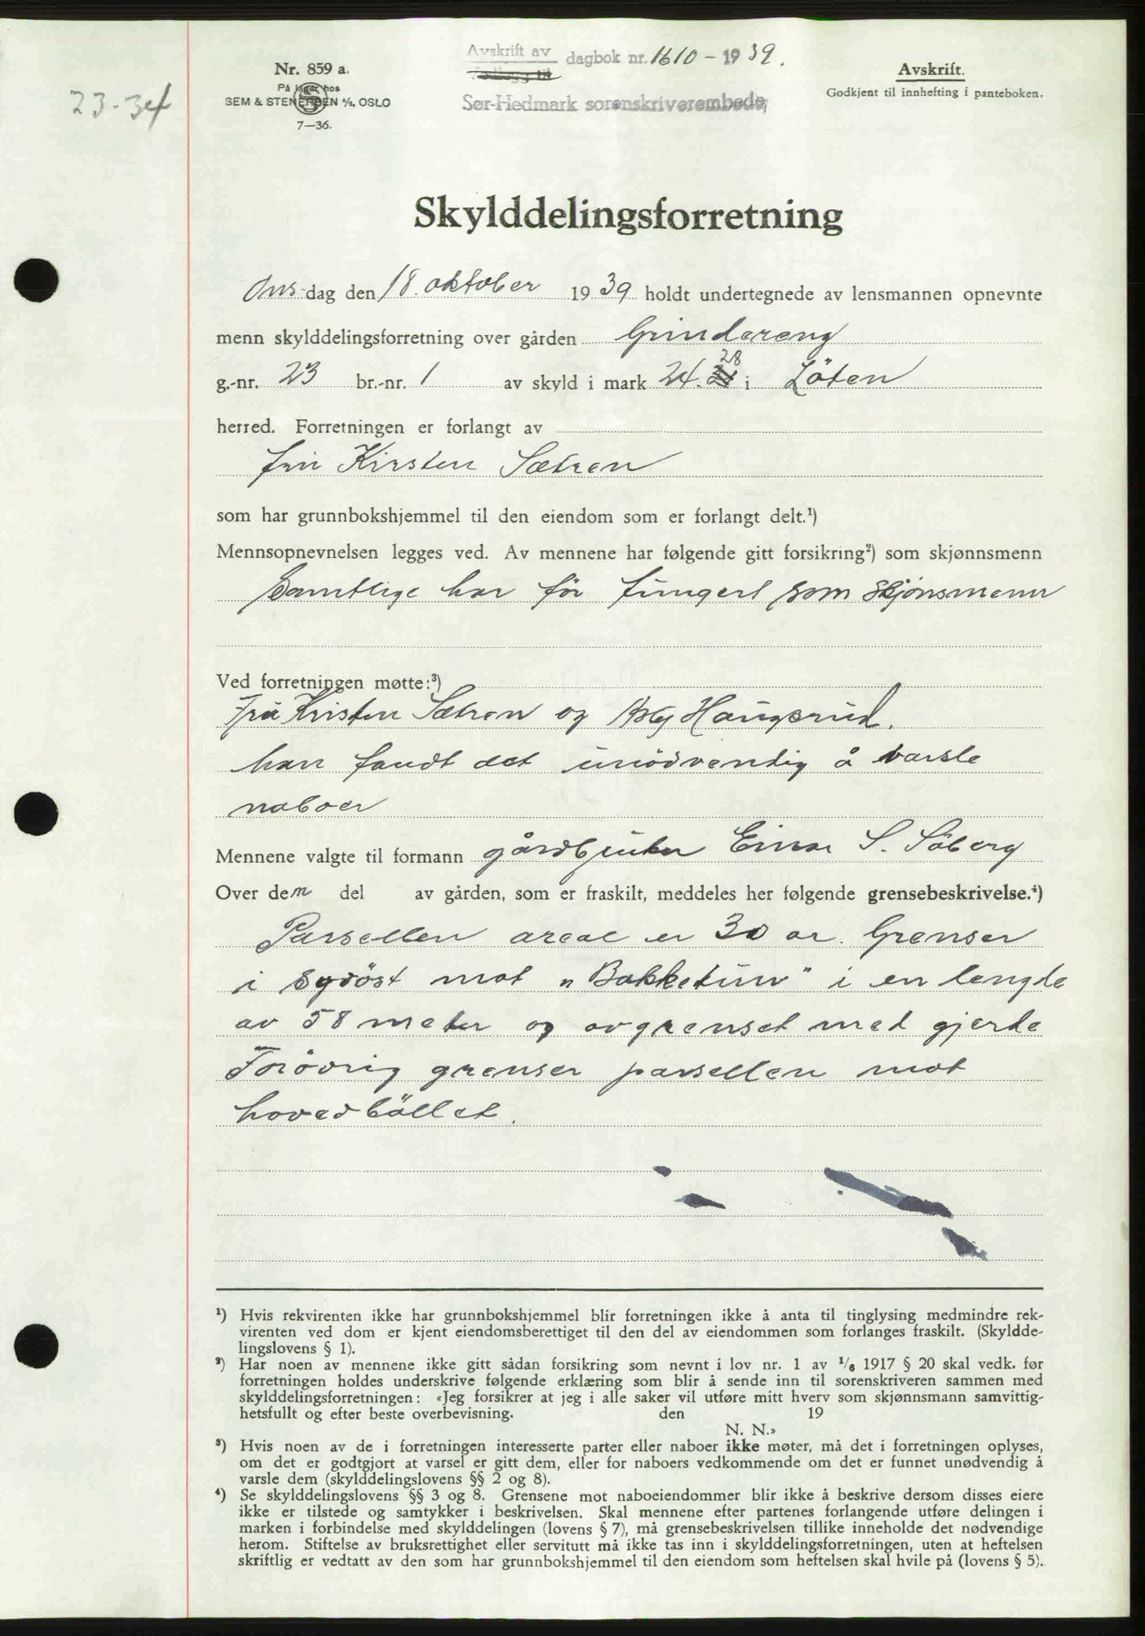 23-34
Nr. 859 a.
På lager hos
SEM & STENERSEN A/S, OSLO
7—36.
Avskrift av dagbok nr. 1610 - 1939.
Sør-Hedmark sorenskriverembede,
Avskrift.
Godkjent til innhefting i panteboken.
Skylddelingsforretning
Onsdag den 18. oktober 1939 holdt undertegnede av lensmannen opnevnte
menn skylddelingsforretning over gården Grindereng
g.-nr. 23 br.-nr. 1 av skyld i mark 24.28 i Löten
herred. Forretningen er forlangt av
fru Kirsten Sætren
som har grunnbokshjemmel til den eiendom som er forlangt delt.¹)
Mennsopnevnelsen legges ved. Av mennene har følgende gitt forsikring²) som skjønnsmenn
Samtlige har för fungert som skjönsmenn
Ved forretningen møtte:³)
Fru Kristen Sætren og Haugsrud.
han fandt det unödvendig å varsle
naboer
Mennene valgte til formann gårdbruker Einar S. Söberg
Over dem del av gården, som er fraskilt, meddeles her følgende grensebeskrivelse.⁴)
Parsellen areal er 30 ar. Grenser
i sydöst mot „Bakketun" i en lengde
av 58 meter og avgrenset med gjerde
Forövrig grenser parsellen mot
hovedböllet.
¹) Hvis rekvirenten ikke har grunnbokshjemmel blir forretningen ikke å anta til tinglysing medmindre rek-
virenten ved dom er kjent eiendomsberettiget til den del av eiendommen som forlanges fraskilt. (Skyldde-
lingslovens § 1).
²) Har noen av mennene ikke gitt sådan forsikring som nevnt i lov nr. 1 av 1/6 1917 § 20 skal vedk. før
forretningen holdes underskrive følgende erklæring som blir å sende inn til sorenskriveren sammen med
skylddelingsforretningen: «Jeg forsikrer at jeg i alle saker vil utføre mitt hverv som skjønnsmann samvittig-
hetsfullt og efter beste overbevisning. den 19
N. N.»
³) Hvis noen av de i forretningen interesserte parter eller naboer ikke møter, må det i forretningen oplyses,
om det er godtgjort at varsel er gitt dem, eller for naboers vedkommende om det er funnet unødvendig å
varsle dem (skylddelingslovens §§ 2 og 8).
⁴) Se skylddelingslovens §§ 3 og 8. Grensene mot naboeiendommer blir ikke å beskrive dersom disses eiere
ikke er tilstede og samtykker i beskrivelsen. Skal mennene efter partenes forlangende utføre delingen i
marken i forbindelse med skylddelingen (lovens § 7), må grensebeskrivelsen tillike inneholde det nødvendige
herom. Stiftelse av bruksrettighet eller servitutt må ikke tas inn i skylddelingsforretningen, uten at heftelsen
skriftlig er vedtatt av den som har grunnbokshjemmel til den eiendom som heftelsen skal hvile på (lovens § 5).